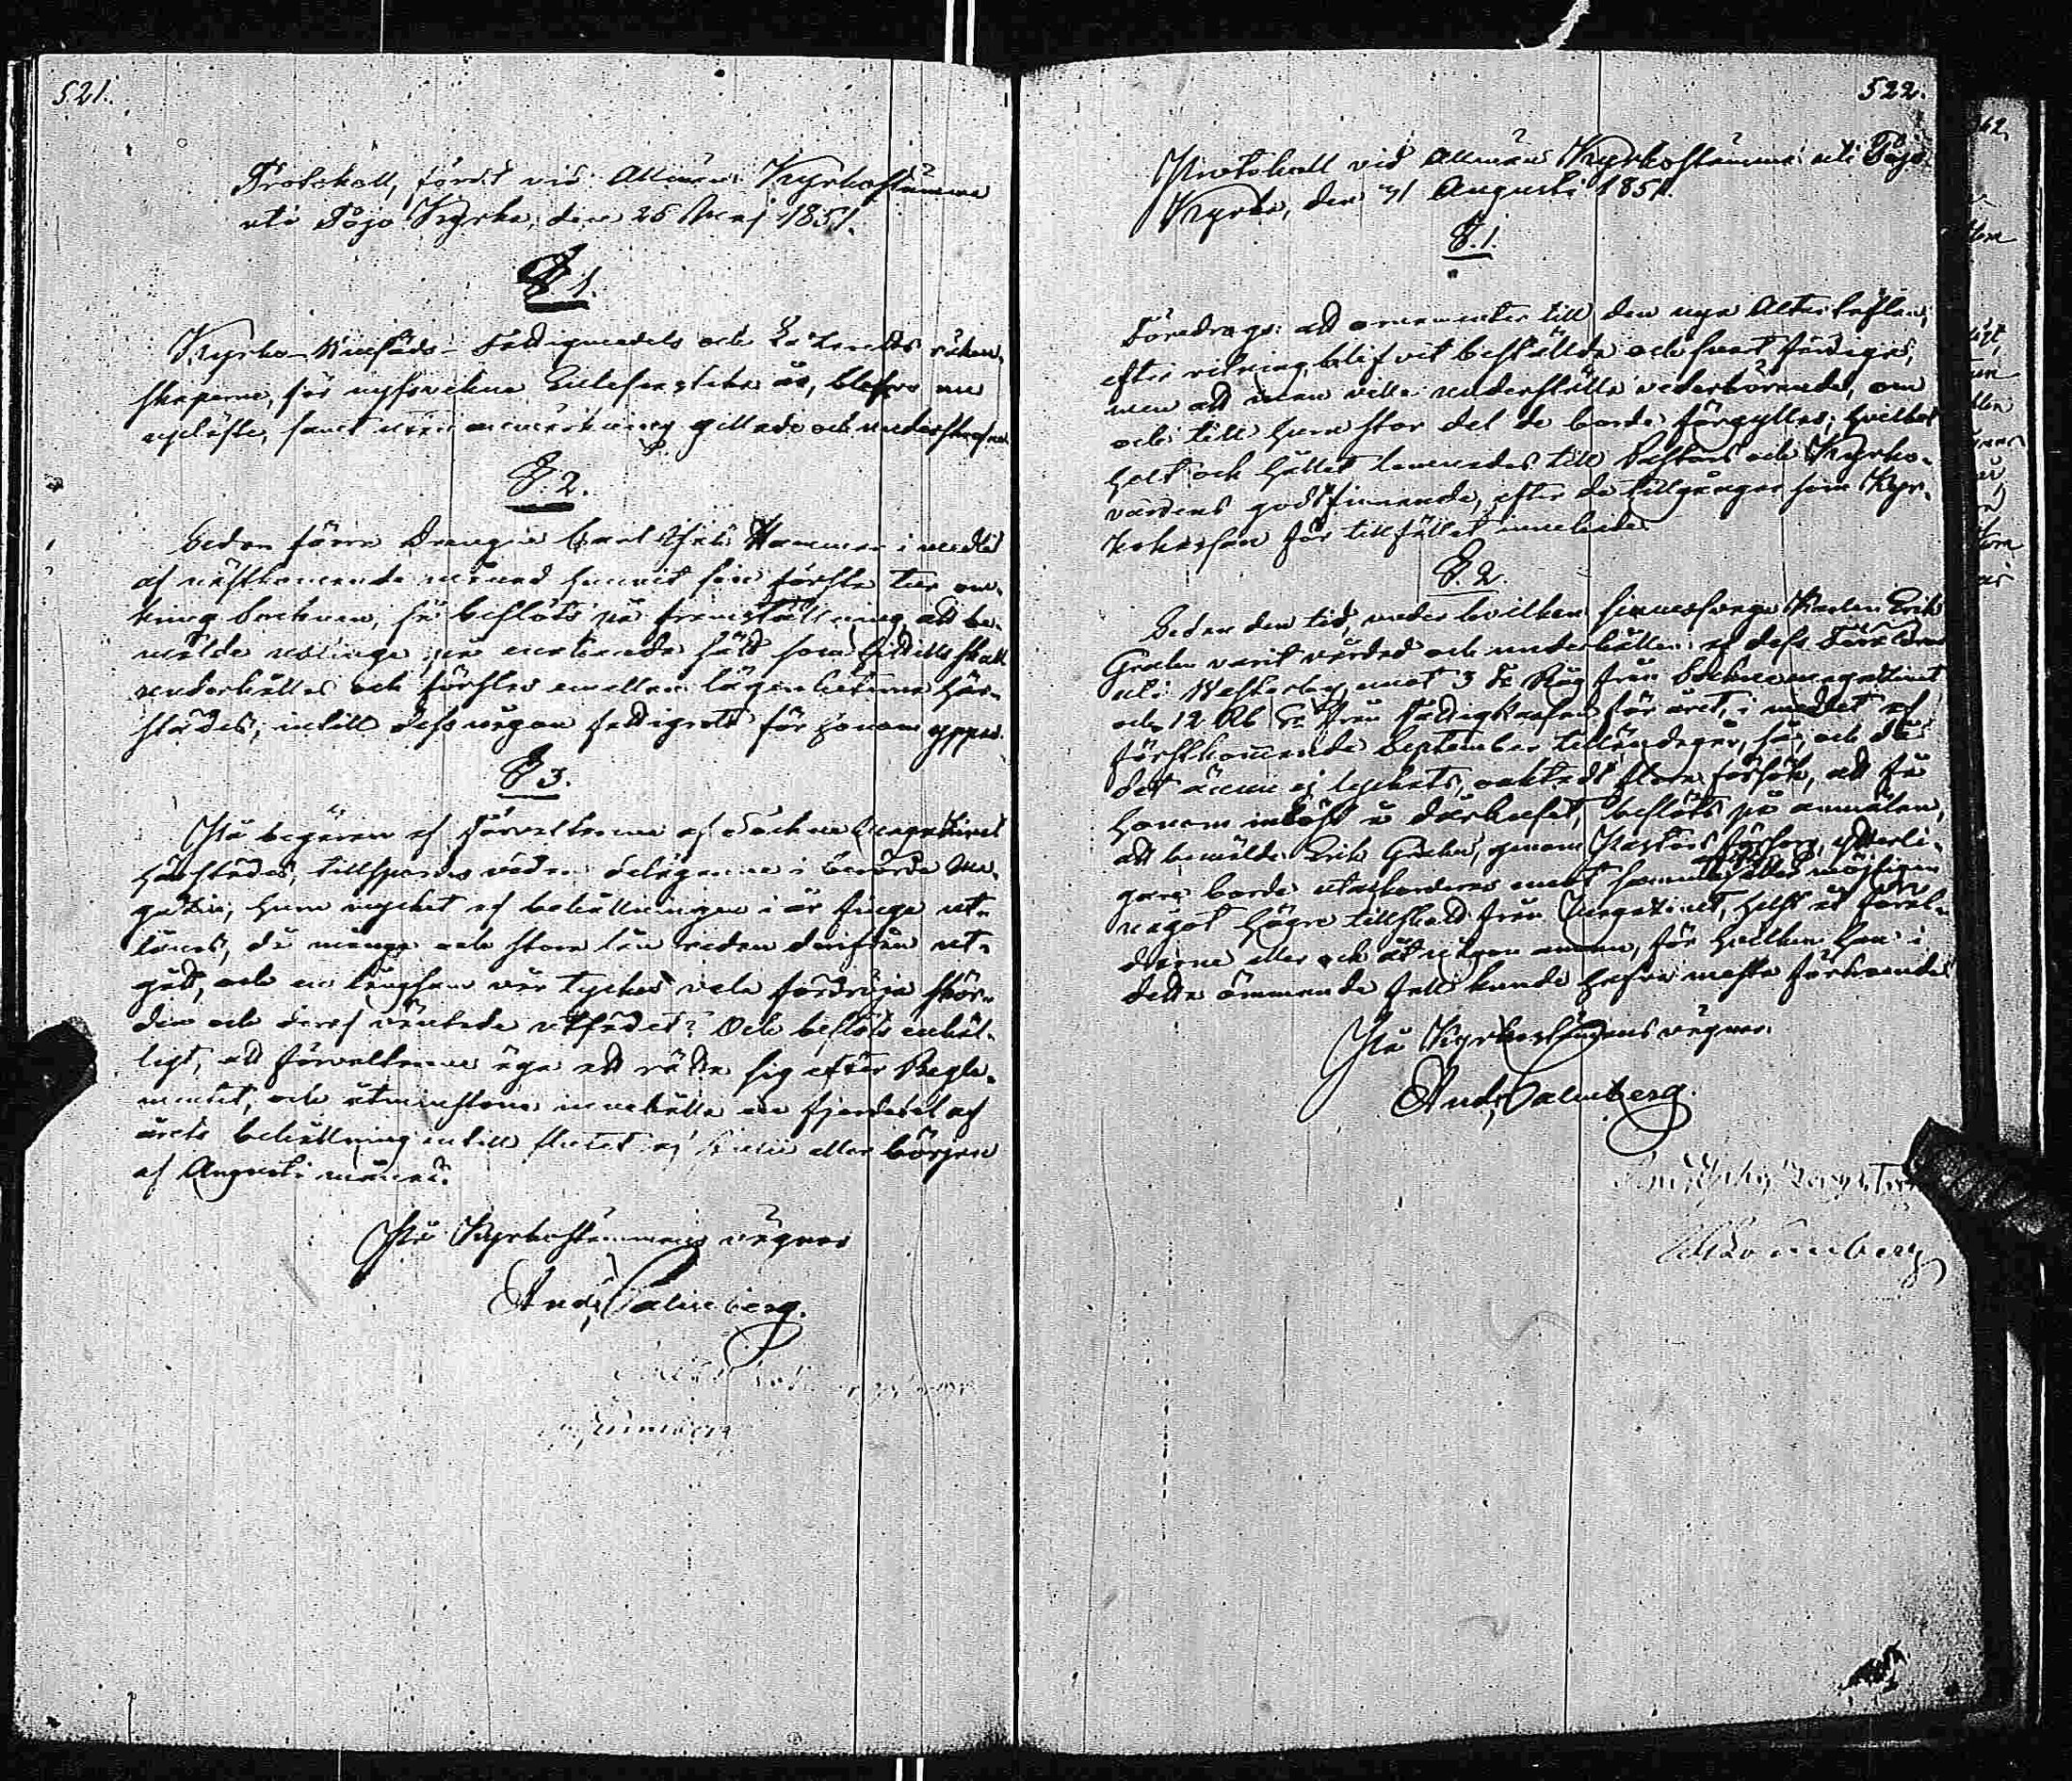 521.
Protokoll, fördt vid Allmän Kyrkostämma
uti Pojo Kyrka, den 25 Maj 1851.
§ 1.
Kyrko- Fattigmedels och räken-
skaperne, för år, blefvo nu
uppläste, samt utan anmärkning gillade och underskrefne.
§. 2.
Sedan förre Drengen Carl Hammar i medlet
af nästkommande månad hunnit sin första tur om-
kring Socknen, så beslöts på framställning att be-
mälde på enahanda sätt som hittills skall
underhållas och föras emellan lägenheterna här-
städes, intill dess någon fattigrote för honom
§ 3.
På begäran af Förvaltarena af Sockne Magazinet
härstädes, tillspordes delägarena i berörde Ma-
gazin, huru mycket af behållningen i år finge ut-
lånas, då många och stora lån redan derifrån ut-
gått, och en långsam vår tyckes vela fördröja skör-
den och deraf väntade utsädet? Och beslöts enhäl-
ligt, att förvaltarena äga att rätta sig efter Regle-
mentet, och åtminstone innehålla en fjerdedel af
årets behållning intill slutet af Julii eller början
af Augusti månad.
På Kyrkostämmans vägnar
And. Palmberg.
522.
Protokoll vid Allmän Kyrkostämma uti Pojo
Kyrka, den 31 Augusti 1851.
§. 1.
Föredrogs: att ornamenter till den nya Altartaflan,
efter ritning, blifvit beställda och snart färdiga,
men att man ville underställa vederbörande, om
och till huru stor del de borde förgyllas; hvilket
helt och hållet lemnades till Pastors och Kyrko-
värdens godtfinnande, efter de tillgångar som Kyr-
kokassan för tillfället innehade.
§. 2.
Sedan den tid, under hvilken sinnessvage Karlen Erik
varit vårdad och underhållen af dess Föräldrar
uti Westerby, emot 3 Råg från Sockne magazinet
och 12 Rb Sr från Fattigkassan för året, i medlet af
förstkommande September tilländagår, så, och då
det ännu ej lyckats, oaktadt flere försök, att få
honom intagen å dårhuset, beslöts på anmälan,
att bemälde Erik genom Pastors försorg, ytterli-
gare borde utackorderas emot samma eller möjligen
något högre tillskott från Magazinet, helst åt föräl-
drarne eller och åt någon annan, för hvilken han i
detta ömmande fall kunde hafva mesta förtroende.
På Kyrkostämmans vägnar
And. Palmberg.